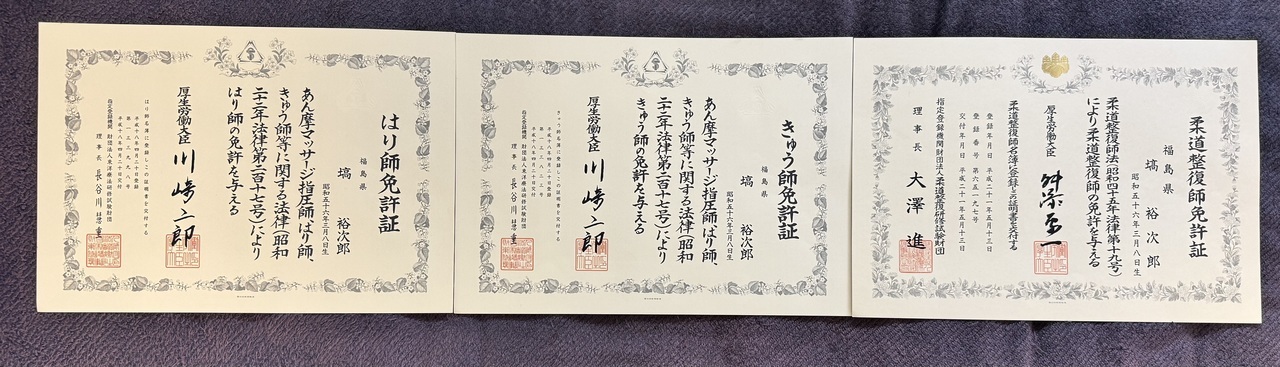 柔道整復師免許証
福島県
塙 裕次郎
昭和五十六年三月八日生
柔道整復師法(昭和四十五年法律第十九号)
により柔道整復師の免許を与える
厚生労働大臣
柔道整復師名簿に登録しこの証明書を交付する
登録年月日 平成二十一年五月十三日
登録番号 第六五一九七号
交付年月日 平成二十一年五月十三日
指定登録機関財団法人柔道整復研修試験財団
理事長 大澤 進
きゅう師免許証
福島県
塙 裕次郎
昭和五十六年三月八日生
あん摩マッサージ指圧師、はり師、
きゅう師等に関する法律(昭和
二十二年法律第二百十七号)により
きゅう師の免許を与える
厚生労働大臣 川崎二郎
きゅう師名簿に登録しこの証明書を交付する
平成十八年四月二十日登録
平成十八年四月二十日交付
指定登録機関 財団法人東洋療法研修試験財団
理事長 長谷川慧重
はり師免許証
福島県
塙 裕次郎
昭和五十六年三月八日生
あん摩マッサージ指圧師、はり師、
きゅう師等に関する法律(昭和
二十二年法律第二百十七号)により
はり師の免許を与える
厚生労働大臣 川崎二郎
はり師名簿に登録しこの証明書を交付する
平成十八年四月二十日登録
平成十八年四月二十日交付
指定登録機関 財団法人東洋療法研修試験財団
理事長 長谷川慧重